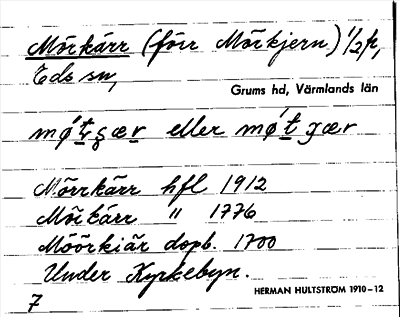 Mörkärr (förr Mörkjern) 1/2 h,
Eds sn,
Grums hd, Värmlands län
mǿtʂær eller mǿtʒær
Mörrkärr hfl 1912
Mörkärr " 1776
Möörkiär dopb. 1700
Under Kyrkebyn.
HERMAN HULTSTRÖM 1910–12
7